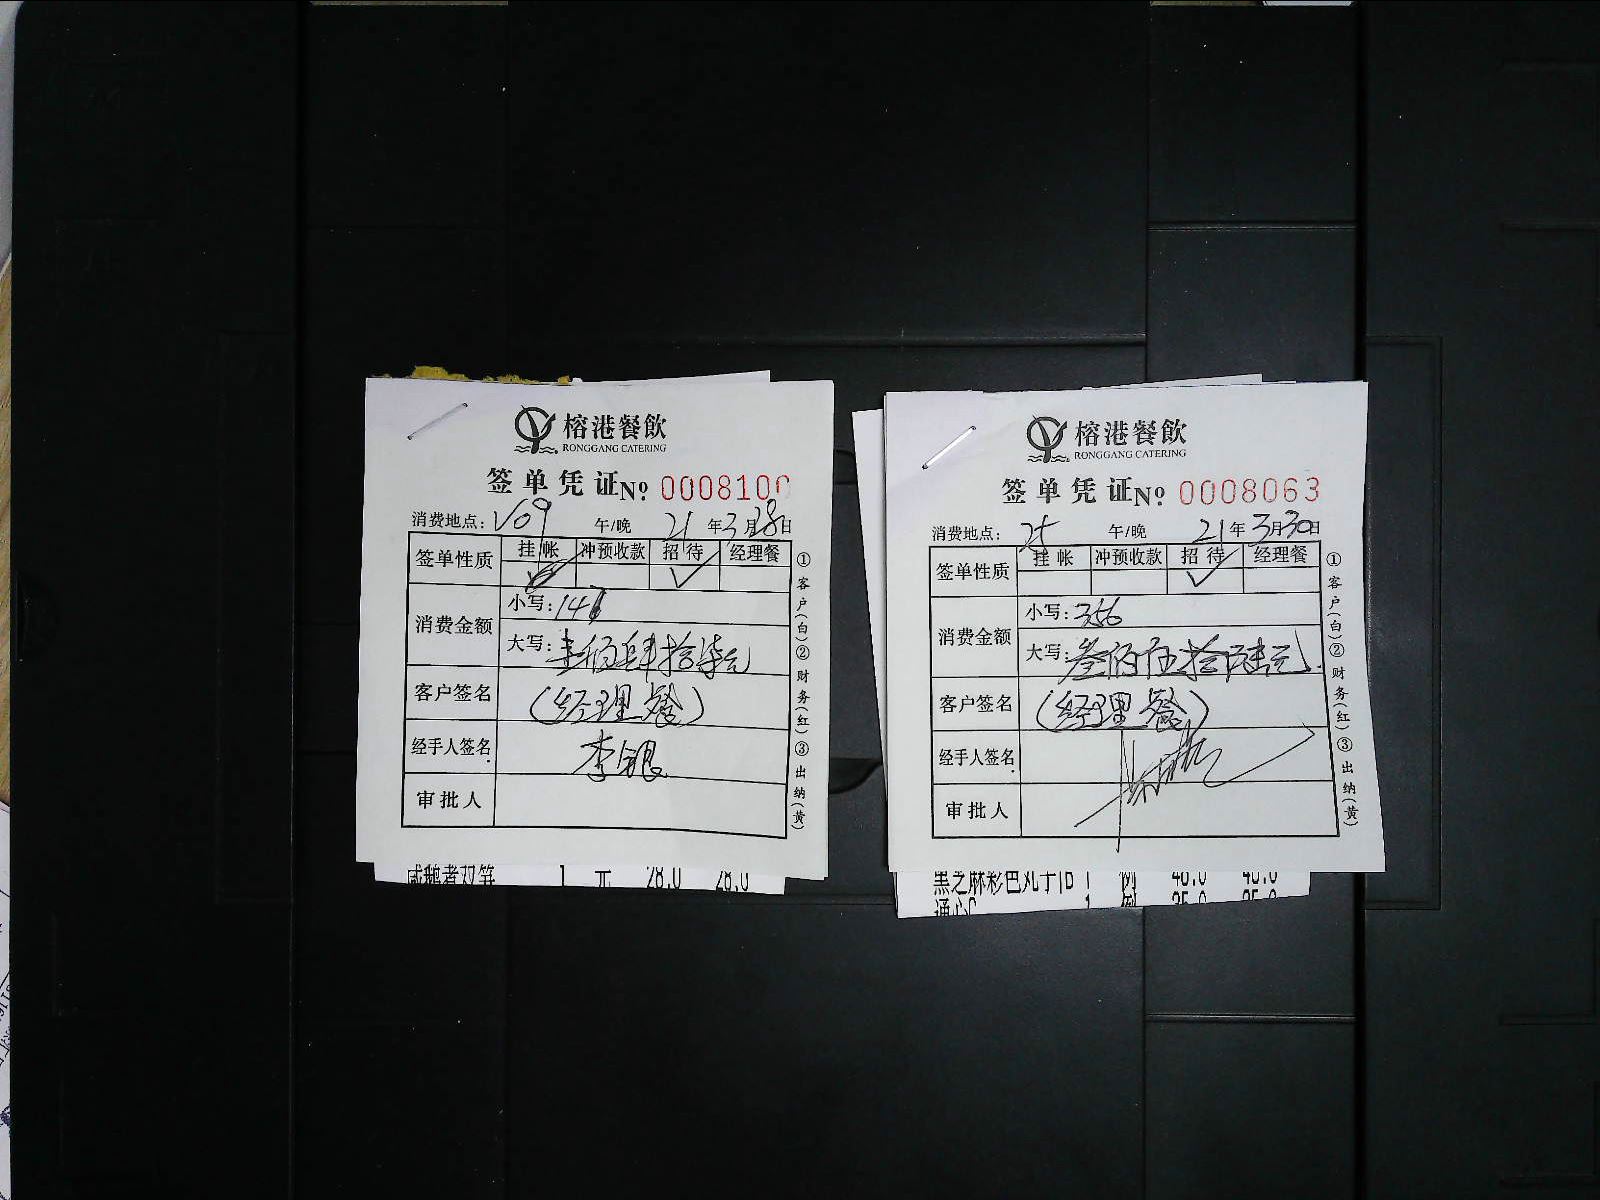 榕港餐飲
RONGGANG CATERING
签单凭证 № 0008100
消费地点: V09 午/晚 21年3月28日
签单性质 挂帐 冲预收款 招待 经理餐
消费金额 小写: 147
大写: 壹佰肆拾柒元
客户签名 (经理餐)
经手人签名 李银
审批人
①客户(白)②财务(红)③出纳(黄)
咸鹅煮双笋 1 元 28.0 28.0
榕港餐飲
RONGGANG CATERING
签单凭证 № 0008063
消费地点: 25 午/晚 21年3月30日
签单性质 挂帐 冲预收款 招待 经理餐
消费金额 小写: 356
大写: 叁佰伍拾陆元
客户签名 (经理餐)
经手人签名
审批人
①客户(白)②财务(红)③出纳(黄)
黑芝麻彩色丸子 1 例
1 例